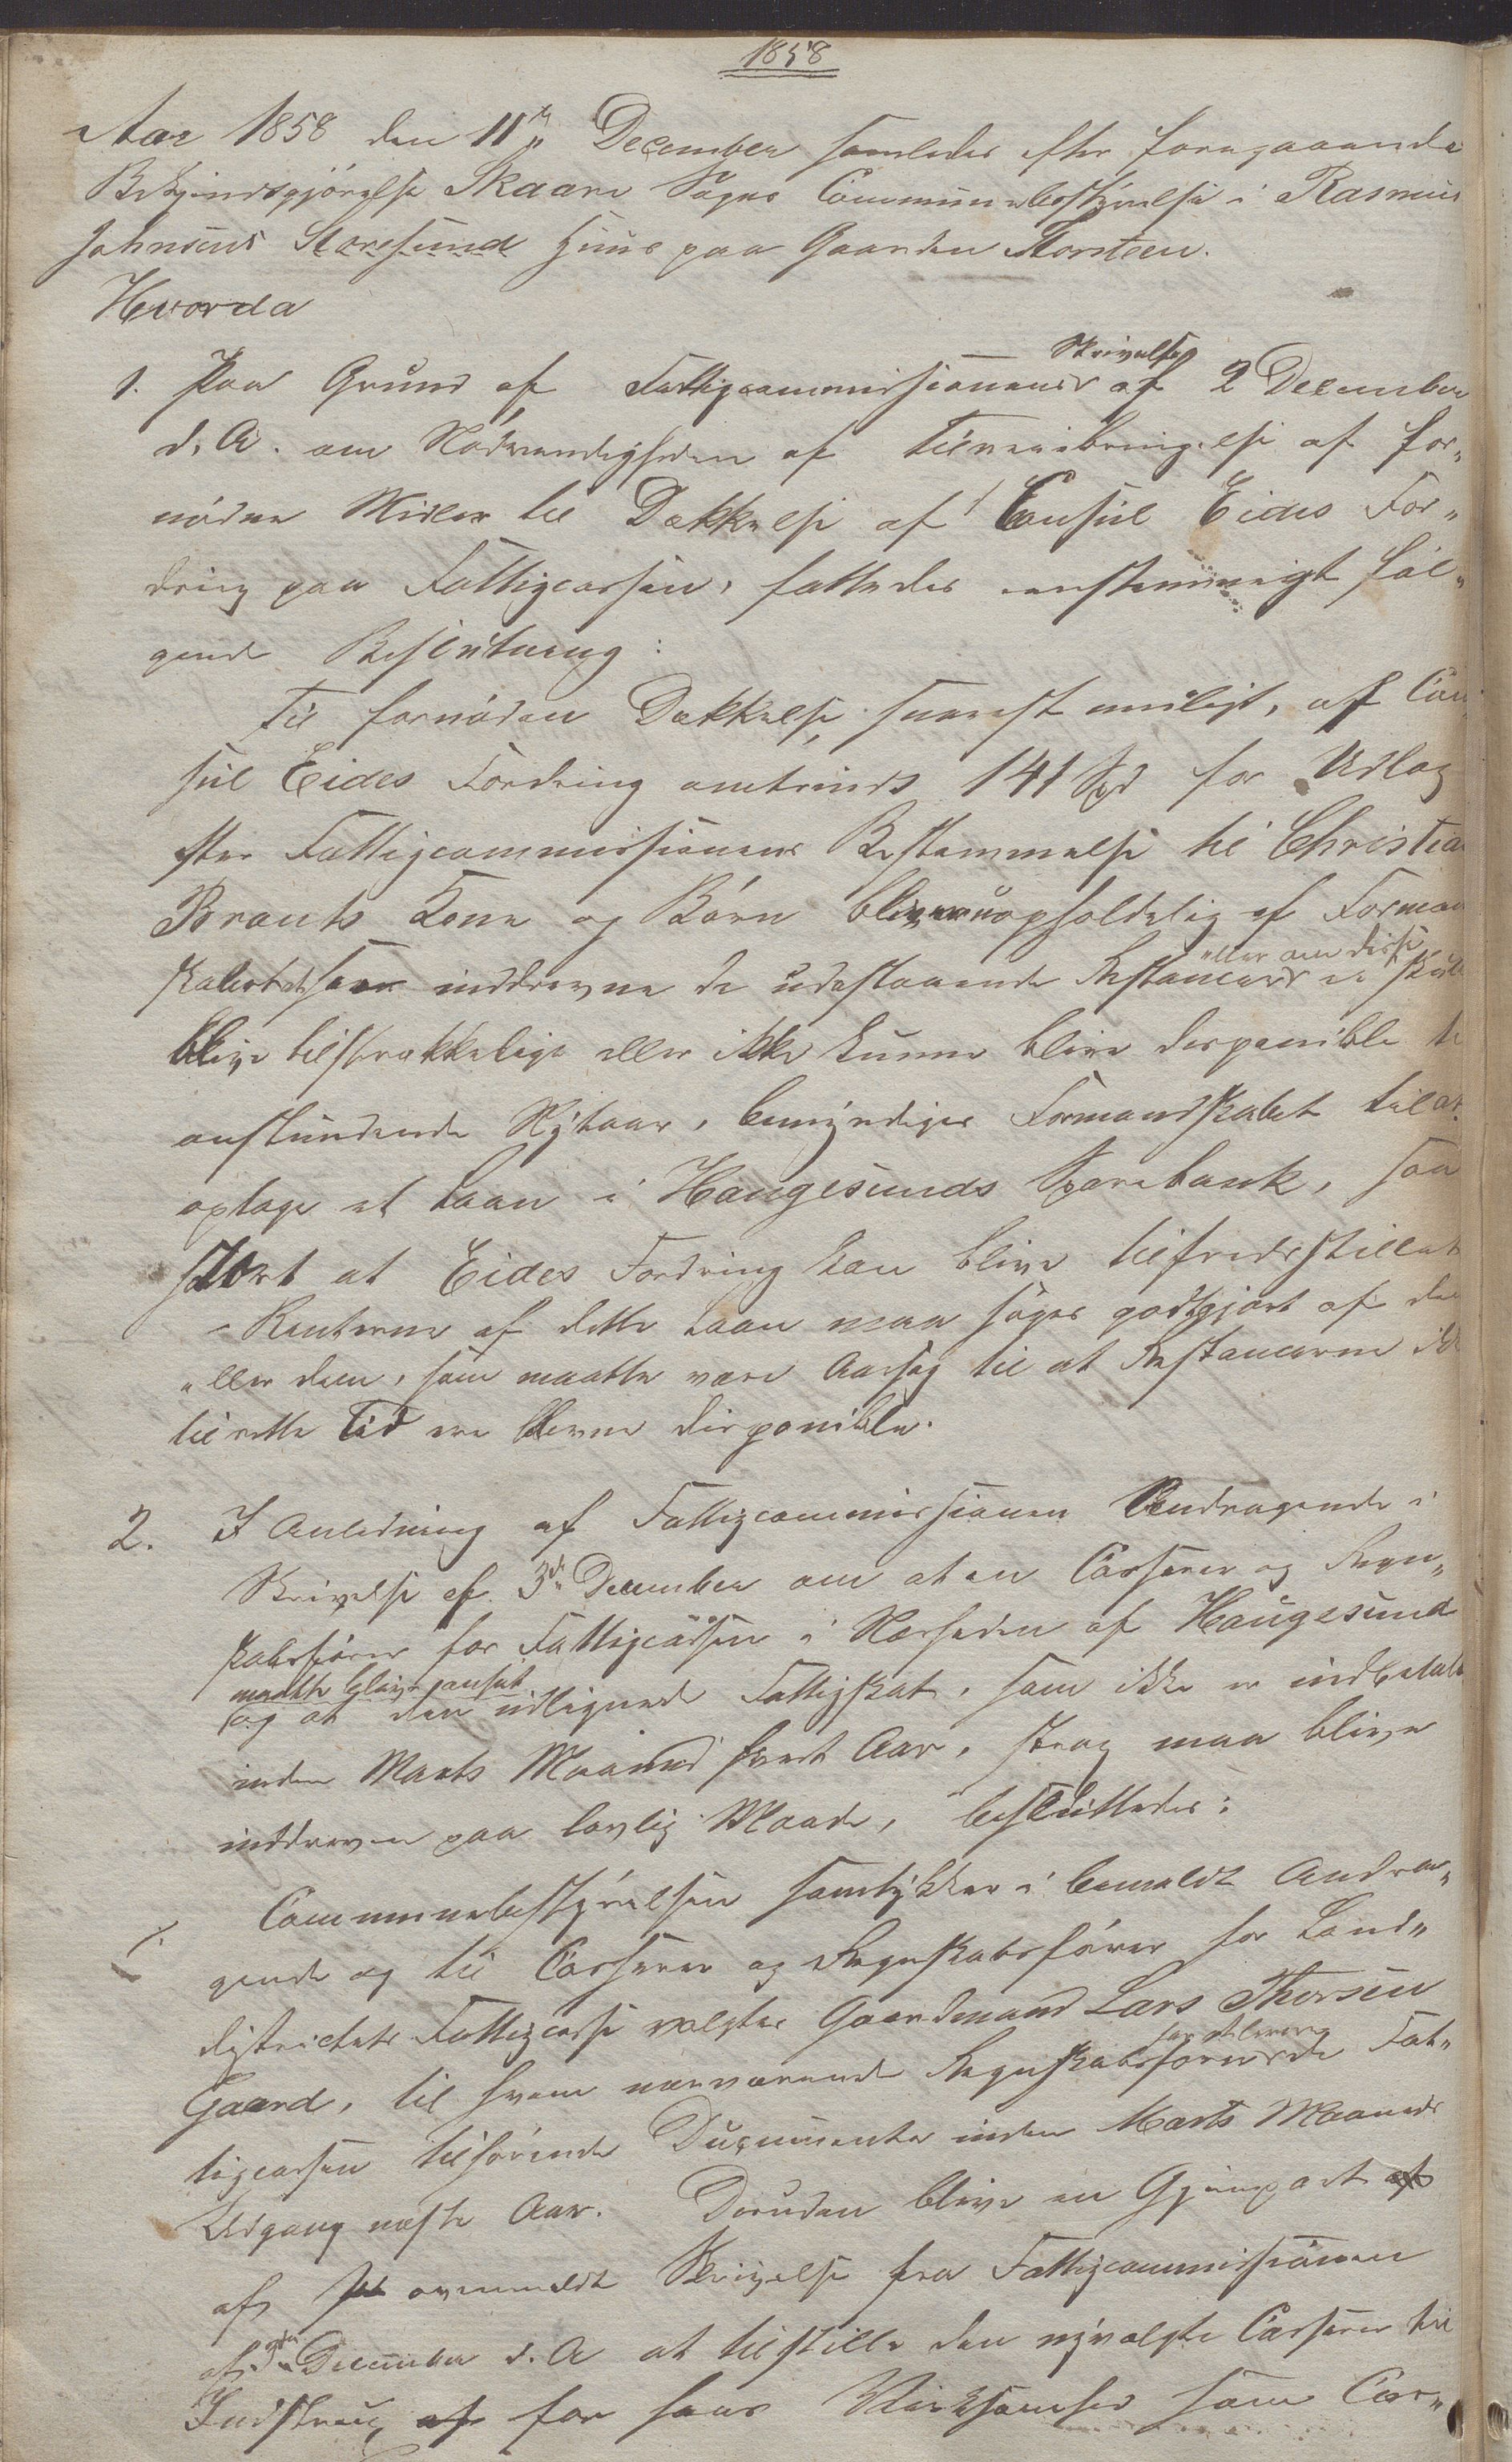 1858
Aar 1858 den 11te December samledes efter foregaaende
Bekjendtgjørelse Skaare Sogns Communebestyrelse i Rasmus
Johnsens Storesund Huus paa Gaarden Storsteen.
Hvorda
Skrivelse
1. Paa Grund af Fattigcommissionens af 2 December
d. A. om Nødvendigheden af Tilveiebringelse af for„
nødne Midler til Dækkelse af Consul Eides For„
dring paa Fattigcassen, fattedes eenstemmigt føl„
gende Beslutning:
Til fornøden Dækkelse, snarest muligt, af Con
sul Eides Fordring omtrinds 141 Spd for Udlæg
efter Fattigcommissionens Bestemmelse til Christian
Brants Kone og Børn bliver uopholdelig af Formand
eller om disse
skabet inddrevne de udestaaende Restancer ei skulde
blive tilstrækkelige eller ikke kunne blive disponible til
anstundende Nytaar, bemyndiges Formandskabet til at
optage et Laan i Haugesunds Sparebank, saa
stort at Eides Fordring kan blive tilfredsstillet
- Renterne af dette Laan maa søges godtgjort af den
eller dem, som maatte være Aarsag til at Restancerne ikke
til rette Tid ere blevne disponible.
2. I Anledning af Fattigcommissionen Andragende i
Skrivelse af 3de December om at en Casserer og Regn„
skabsfører for Fattigcassen i Nærheden af Haugesund
maatte blive ansat
og at den udlignede Fattigskat, som ikke er indbetalt
inden Marts Maaned hvert Aar, strax maa blive
inddreven paa lovlig Maade, besluttedes:
Communebestyrelsen samtykker i bemeldt Andra„
gende og til Casserer og Regnskabsfører for Land„
districtets Fattigcasse valgtes Gaardmand Lars Thorsen
Gaard, til hvem nærværende Regnskabsfører Fat„
tigcassen tilhørende Documenter inden Marts Maaneds
Udgang næste Aar. Desuden bliver en Gjenpart af
af ovenmeldt Skrivelse fra Fattigcommissionen
af 3de December d. A at tilstille den nyvalgte Casserer til
Instrux for hans Virksomhed som Cas„